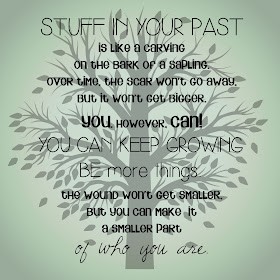 STUFF IN YOUR PAST
is like a carving
on the bark of a sapling.
Over time, the scar won't go away,
But it won't get bigger.
You, however, can!
YOU CAN KEEP GROWING
BE more Things.
the wound won't get smaller,
But you can make it
a smaller part
of who you are.